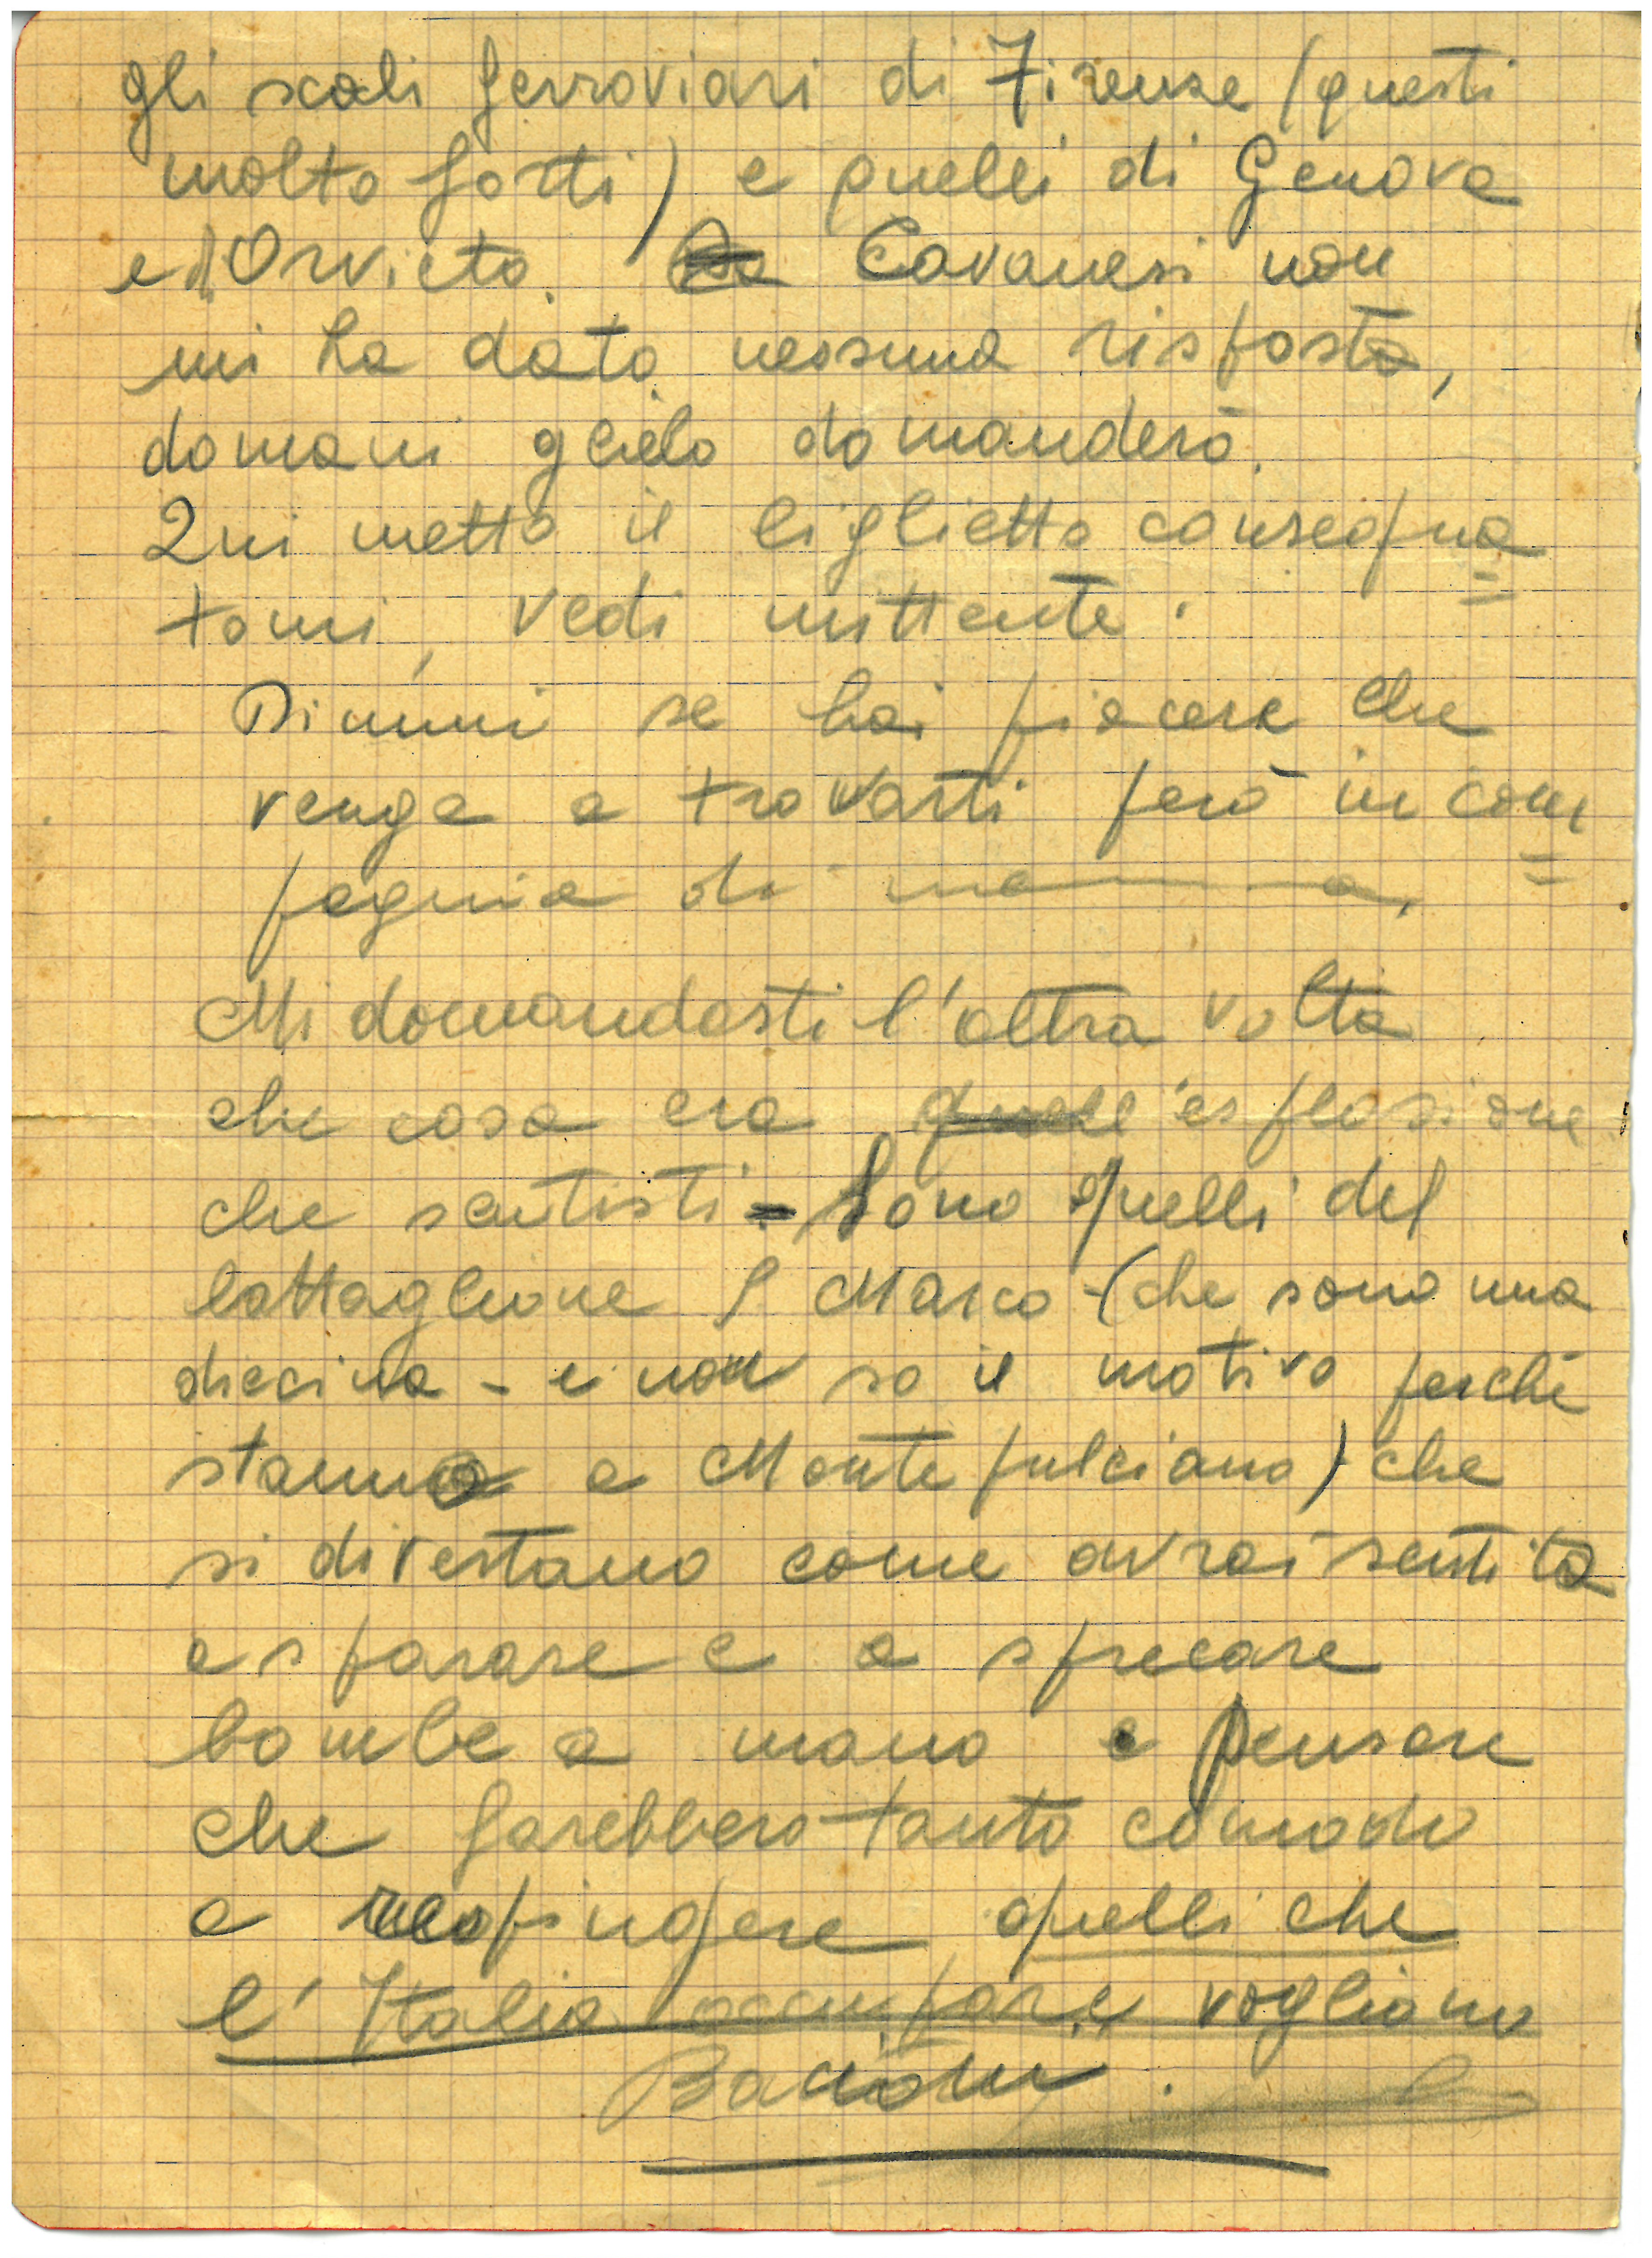 gli scali ferroviari di Firenze (questi
molto forti) e quelli di Genova
e d'Orvieto. Cavanesi non
mi ha dato nessuna risposta,
domani glielo domanderò.
Qui metto il biglietto consegna
=
tomi, vedi mittente.
Dimmi se hai piacere che
venga a trovarti però in com
=
pagnia di mamma.
Mi domandasti l'altra volta
che cosa era quell'esplosione
che sentisti - Sono quelli del
battaglione S Marco - (che sono una
diecina - e non so il motivo perché
stanno a Montepulciano) che
si divertano come avrai sentito
a sparare e a sprecare
bombe a mano e pensare
che farebbero tanto comodo
a respingere quelli che
l'Italia occupare vogliano
Bacioni.